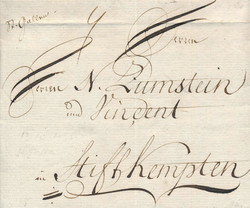 St. Gallen
Herrn
Herrn N. Zumstein
und Vincent
in Stifft Kempten